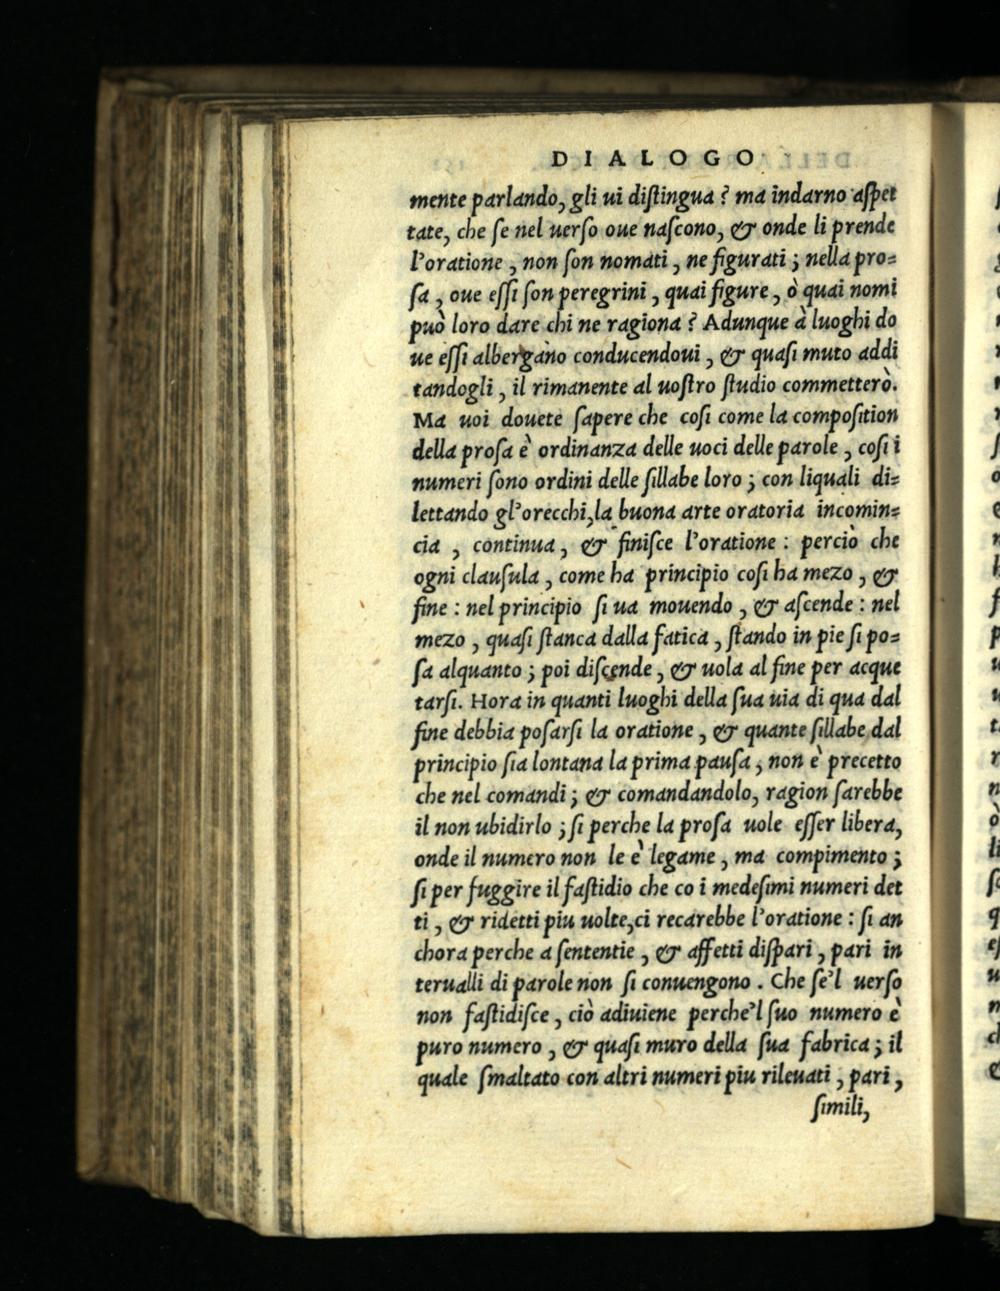 DIALOGO
mente parlando, gli ui diſtingua ? ma indarno aſpet
tate, che ſe nel uerſo oue naſcono, & onde li prende
l'oratione , non ſon nomati , ne figurati ; nella pro=
ſa , oue eſſi ſon peregrini , quai figure , ò quai nomi
può loro dare chi ne ragiona ? Adunque à luoghi do
ue eſſi albergano conducendoui , & quaſi muto addi
tandogli , il rimanente al uoſtro ſtudio commetterò.
Ma uoi douete ſapere che coſi come la compoſition
della proſa è ordinanza delle uoci delle parole , coſi i
numeri ſono ordini delle ſillabe loro ; con liquali di=
lettando gl'orecchi,la buona arte oratoria incomin=
cia , continua , & finiſce l'oratione : perciò che
ogni clauſula , come ha principio coſi ha mezo , &
fine : nel principio ſi ua mouendo , & aſcende : nel
mezo , quaſi ſtanca dalla fatica , ſtando in pie ſi po=
ſa alquanto ; poi diſcende , & uola al fine per acque
tarſi. Hora in quanti luoghi della ſua uia di qua dal
fine debbia poſarſi la oratione , & quante ſillabe dal
principio ſia lontana la prima pauſa , non è precetto
che nel comandi ; & comandandolo, ragion ſarebbe
il non ubidirlo ; ſi perche la proſa uole eſſer libera,
onde il numero non le è legame , ma compimento ;
ſi per fuggire il faſtidio che co i medeſimi numeri det
ti , & ridetti piu uolte,ci recarebbe l'oratione : ſi an
chora perche a ſententie , & affetti diſpari , pari in
terualli di parole non ſi conuengono . Che ſe'l uerſo
non faſtidiſce , ciò adiuiene perche'l ſuo numero è
puro numero , & quaſi muro della ſua fabrica ; il
quale ſmaltato con altri numeri piu rileuati , pari ,
ſimili,